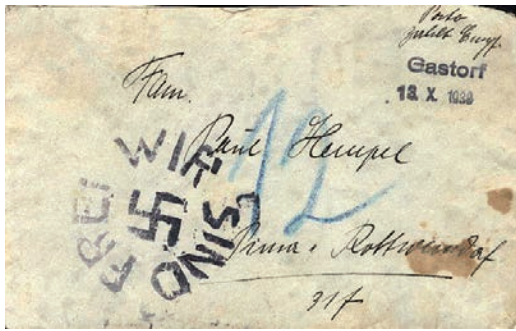 Porto
zahlt Empf.
Gastorf
13. X. 1938
Fam.
Paul Hempel
12
WIR SIND FREI
Pirna - Rottwerndorf
31f